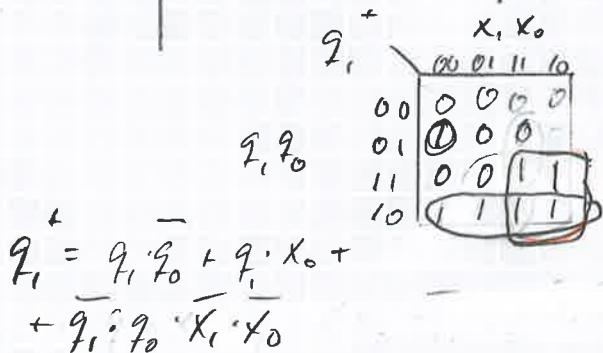 q₁⁺ x₁ x₀
00 01 11 10
00 0 0 0 0
01 1 0 0
q₁ q₀
11 0 0 1 1
10 1 1 1 1
q₁⁺ = q₁·q̅₀ + q₁·x₀ +
+ q̅₁·q₀·x̅₁·x̅₀